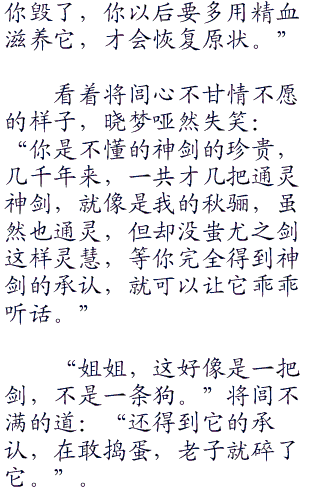 你毁了，你以后要多用精血
滋养它，才会恢复原状。”
看着将闾心不甘情不愿
的样子，晓梦哑然失笑：
“你是不懂的神剑的珍贵，
几千年来，一共才几把通灵
神剑，就像是我的秋骊，虽
然也通灵，但却没蚩尤之剑
这样灵慧，等你完全得到神
剑的承认，就可以让它乖乖
听话。”
“姐姐，这好像是一把
剑，不是一条狗。”将闾不
满的道：“还得到它的承
认，在敢捣蛋，老子就碎了
它。”。